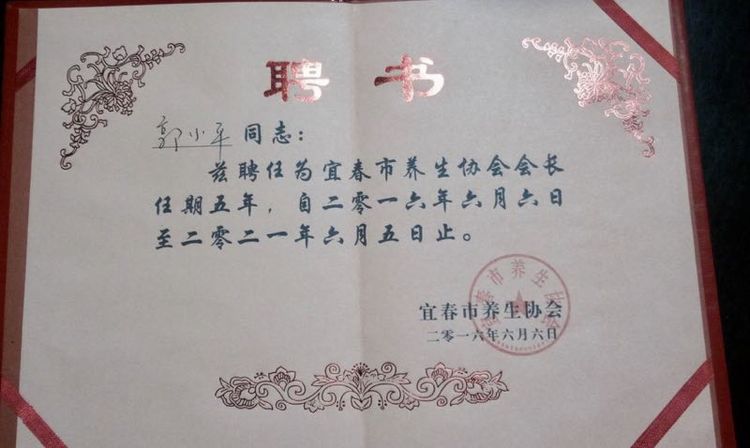 聘书
郭小平 同志：
兹聘任为宜春市养生协会会长
任期五年，自二零一六年六月六日
至二零二一年六月五日止。
宜春市养生协会
宜春市养生协会
二零一六年六月六日